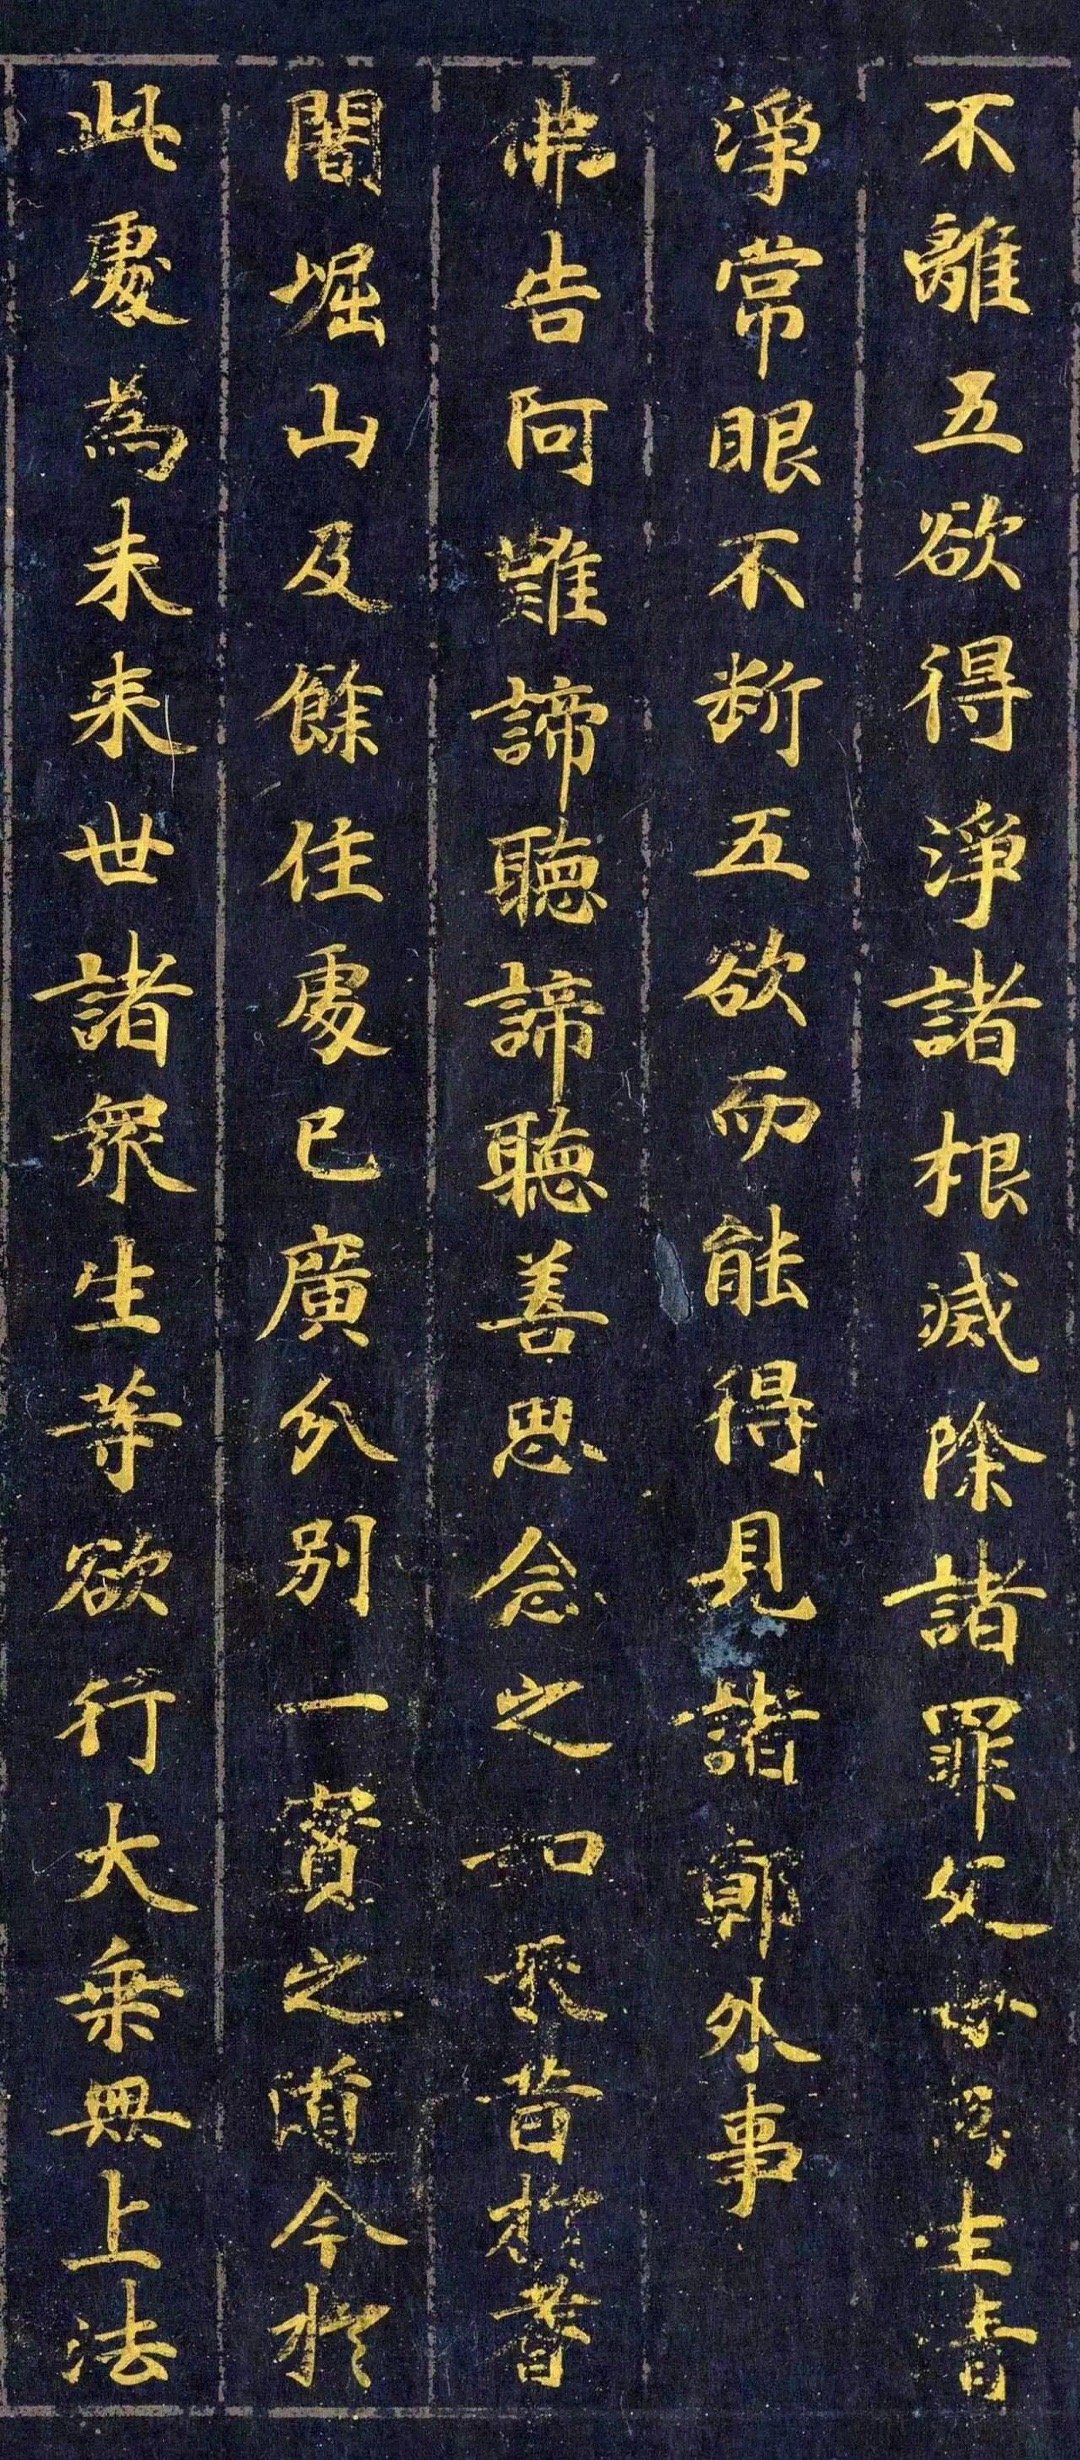 不離五欲得淨諸根滅除諸罪父母所生清
淨常眼不斷五欲而能得見諸鄣外事
佛告阿難諦聽諦聽善思念之如來昔於耆
闍堀山及餘住處已廣分別一實之道今於
此處為未来世諸衆生等欲行大乗無上法